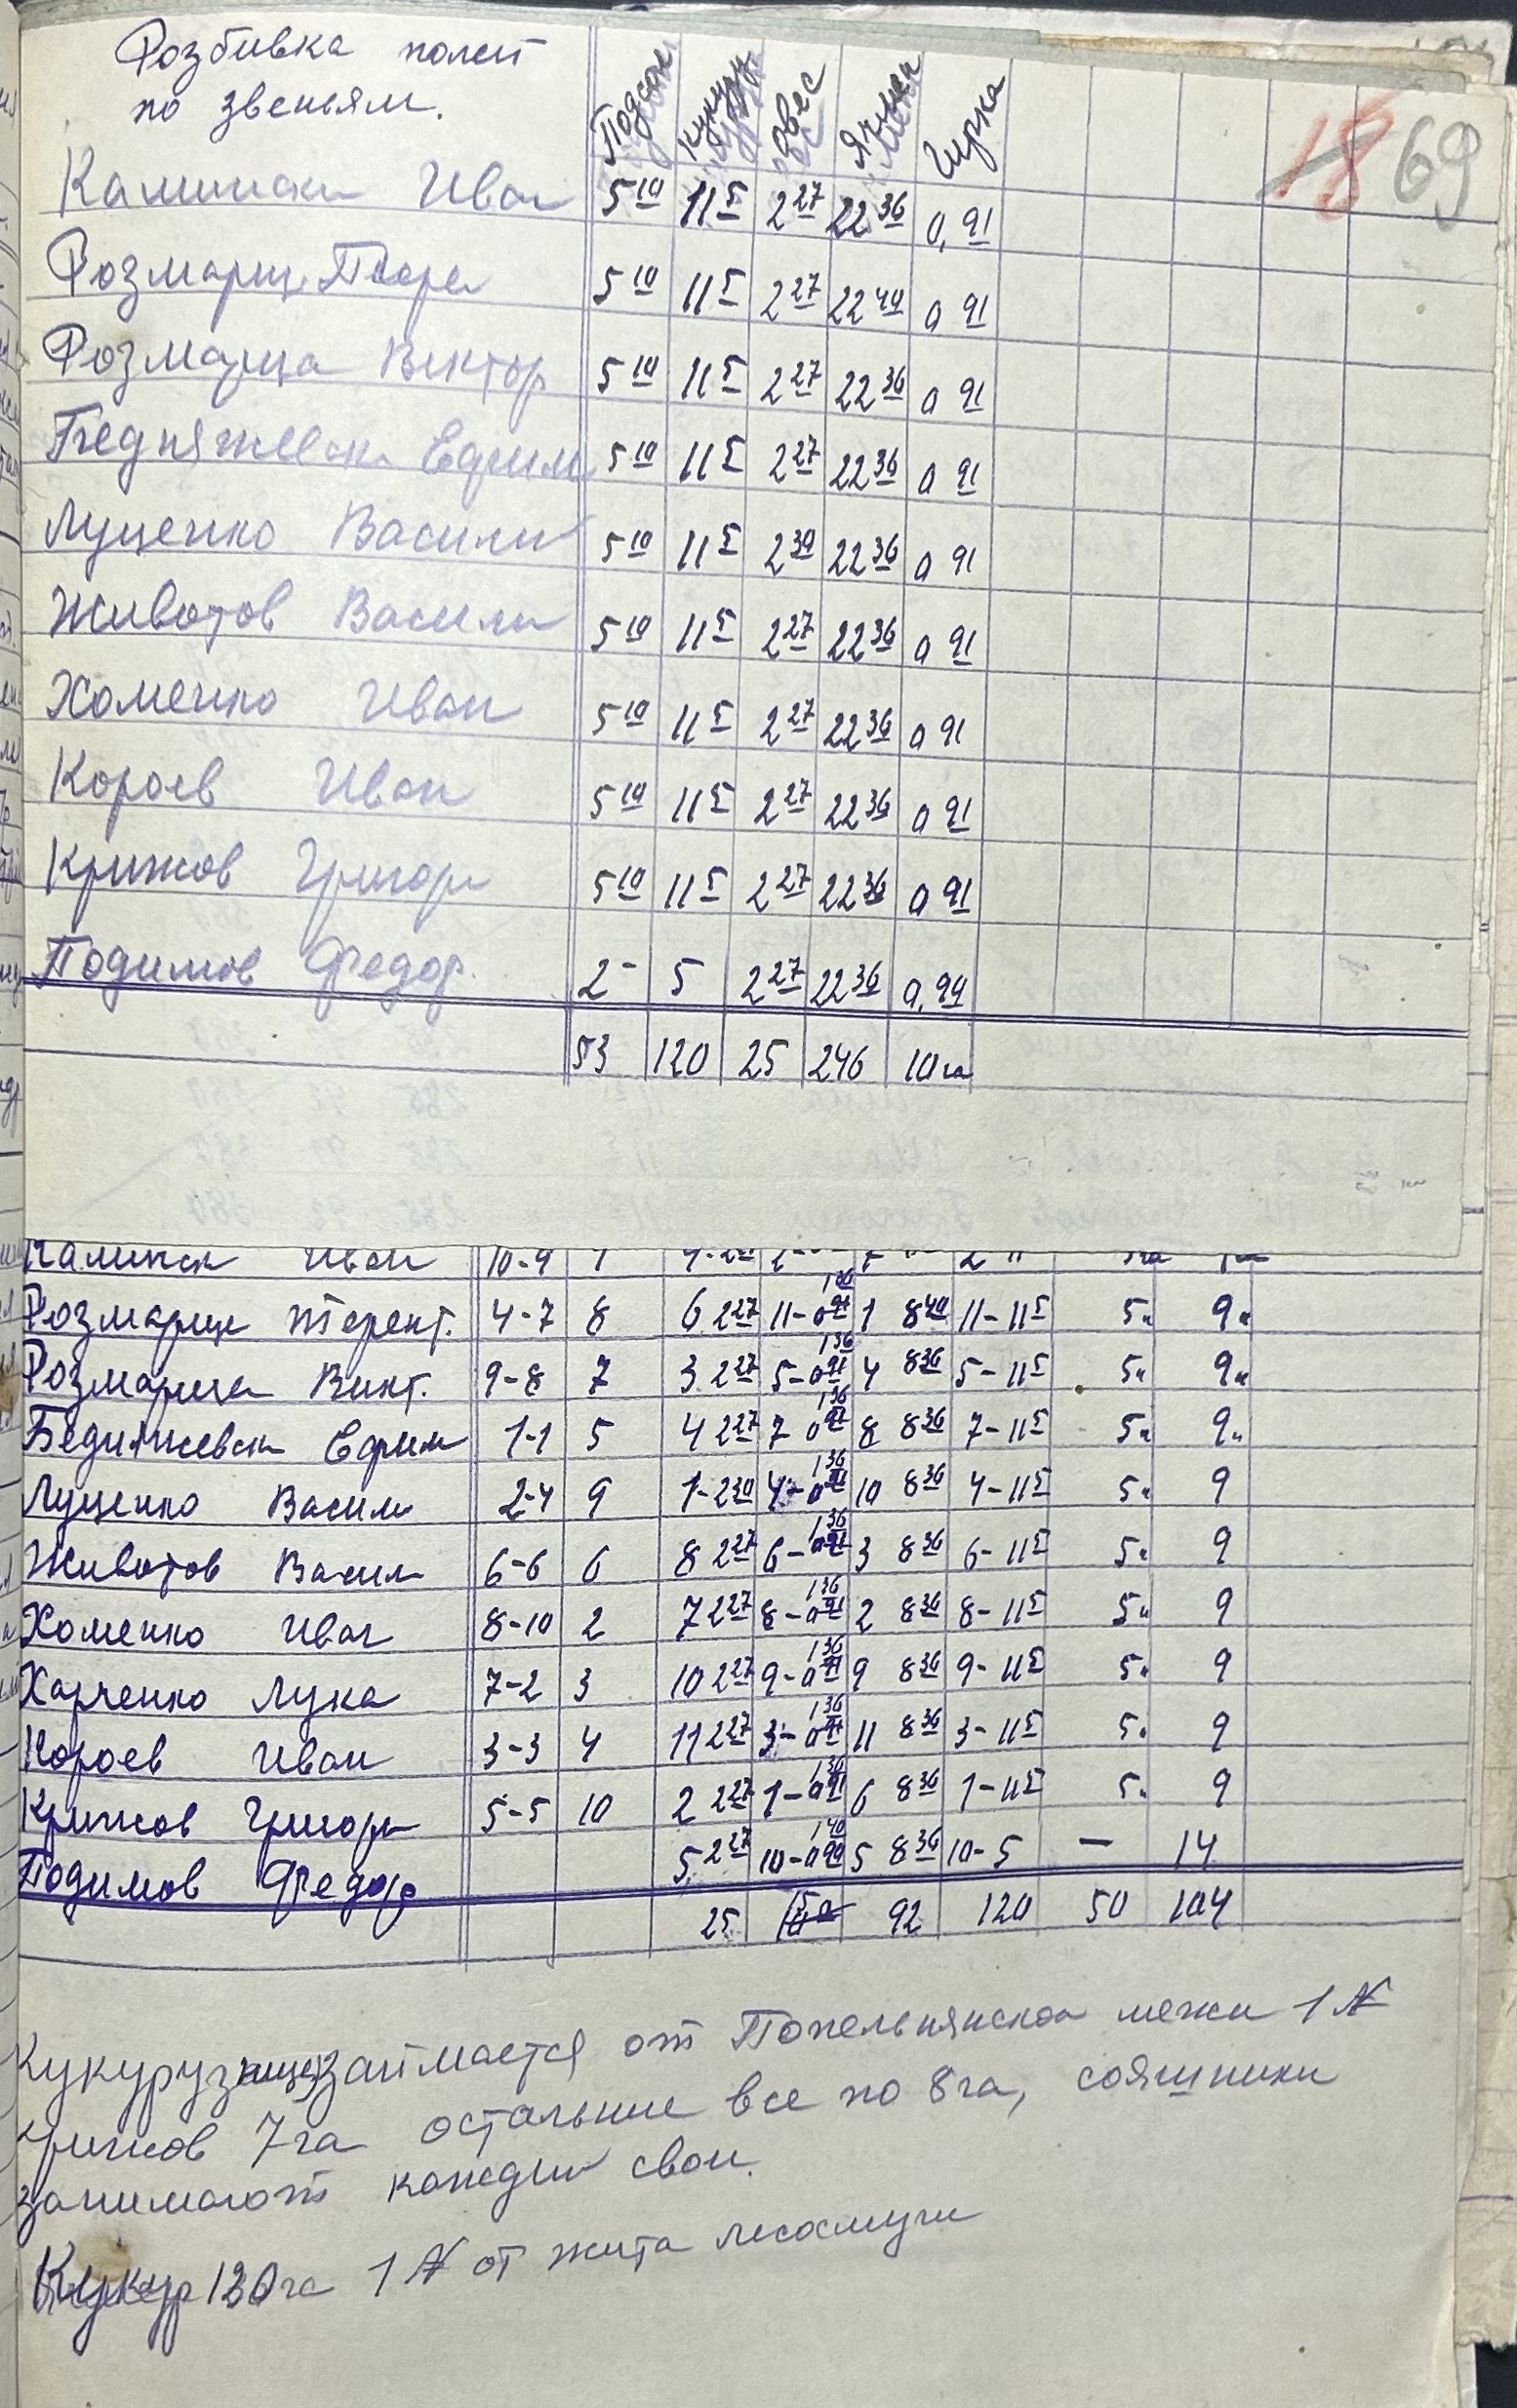 Розбивка полей
по звеньям.
Подсол Кукуру Овес Ячмен Гирка
18 69
Калински Иван 5 10 11 5 2 27 22 36 0,91
Розмарица Тере 5 10 11 5 2 27 22 40 0 91
Розмарица Виктор 5 10 11 5 2 27 22 36 0 91
Бедняжевски Ефим 5 10 11 5 2 27 22 36 0 91
Луценко Васили 5 10 11 5 2 30 22 36 0 91
Животов Васили 5 10 11 5 2 27 22 36 0 91
Хоменко Иван 5 10 11 5 2 27 22 36 0 91
Короев Иван 5 10 11 5 2 27 22 36 0 91
Крижов Григори 5 10 11 5 2 27 22 36 0 91
Подимов Федор. 2- 5 2 27 22 36 0,90
53 120 25 246 10 га
Калинск Иван 10-9 1
Розмарице Терент. 4-7 8 6 2 27 11-0 91 1 36 1 8 40 11-11 5 5" 9"
Розмарица Викт. 9-8 7 3 2 27 5-0 91 1 36 4 8 36 5-11 5 5" 9"
Бедняжевски Ефим 1-1 5 4 2 27 7 0 91 1 36 8 8 36 7-11 5 5" 9"
Луценко Васили 2-4 9 1-2 30 4-0 91 1 36 10 8 36 4-11 5 5" 9
Животов Васили 6-6 6 8 2 27 6-0 91 1 36 3 8 36 6-11 5 5" 9
Хоменко Иван 8-10 2 7 2 27 8-0 91 1 36 2 8 36 8-11 5 5" 9
Харченко Лука 7-2 3 10 2 27 9-0 91 1 36 9 8 36 9-11 5 5" 9
Короев Иван 3-3 4 11 2 27 3-0 91 1 36 11 8 36 3-11 5 5" 9
Крижов Григори 5-5 10 2 2 27 1-0 91 1 36 6 8 36 1-11 5 5" 9
Подимов Федор 5 2 27 10-0 90 1 40 5 8 36 10-5 — 14
25 92 120 50 104
Кукурузнище займается от Попельнянской межи 1 N
Крижов 7 га остальние все по 8 га, сояшники
занимают каждий свои.
Кукур 120 га 1 N от жита лесосмуги